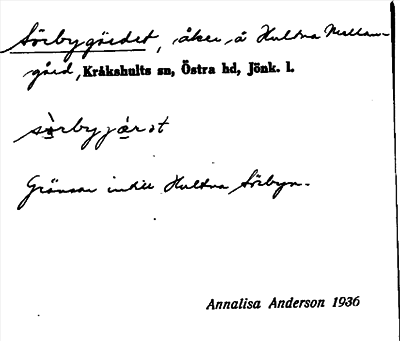 Sörbygärdet, åker å Hultna Mellan-
gård, Kråkshults sn, Östra hd, Jönk. l.
sòrbyjæ̀rət
Gränsar intill Hultna Sörbyn.
Annalisa Anderson 1936